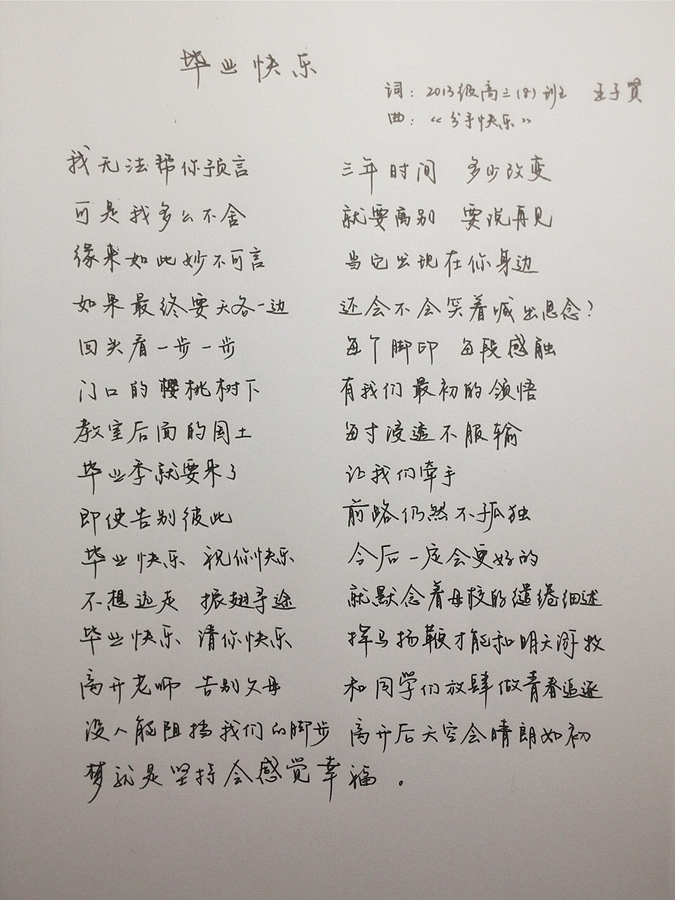 毕业快乐
词：2013级高三(8)班 王子
曲：“分手快乐”
我无法帮你预言 三年时间 多少改变
可是我多么不舍 就要离别 要说再见
缘来如此妙不可言 当它出现在你身边
如果最终要天各一边 还会不会笑着喊出思念?
回头看一步一步 每个脚印 每段感触
门口的樱桃树下 有我们最初的领悟
教室后面的国土 每寸浸透不服输
毕业季就要来了 让我们牵手
即使告别彼此 前路仍然不孤独
毕业快乐 祝你快乐 今后一定会更好的
不想逃走 振翅寻途 就默念着母校的缱绻细述
毕业快乐 请你快乐 挥马扬鞭才能和明天游牧
离开老师 告别父母 和同学们放肆做青春追逐
没人能阻挡我们的脚步 离开后天空会晴朗如初
梦就是坚持会感觉幸福。